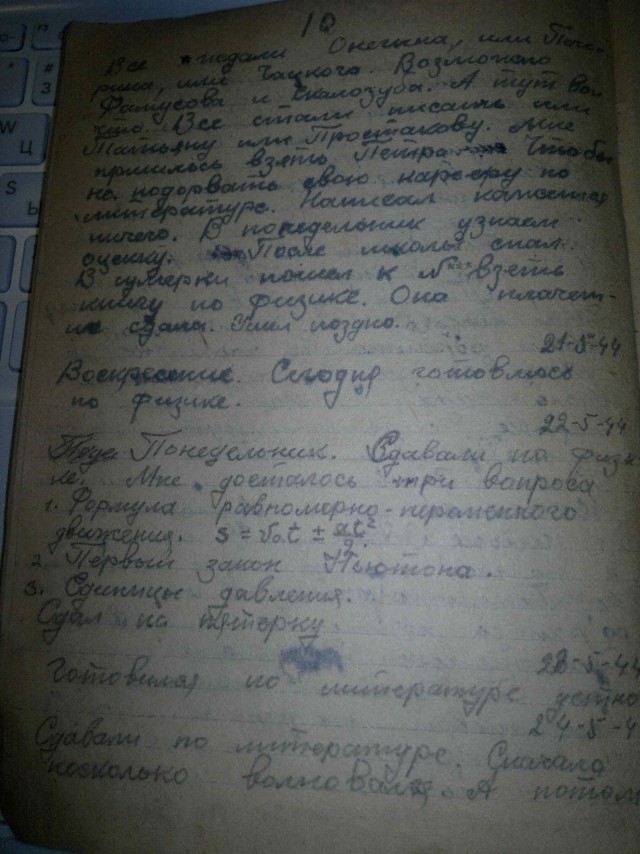 10
Все ждали Онегина, или Печо-
рина, или Чацкого. Возможно
Фамусова и Скалозуба. А тут вон
что. Все стали писать или
Татьяну или Простакову. Мне
пришлось взять Петра Чтобы
не подорвать свою карьеру по
литературе. Написал кажется
ничего. В понедельник узнаем
оценку. После школы спал.
В сумерки пошел к N*** взять
книгу по физике. Она плачет-
не сдала. Ушел поздно.
21-5-44
Воскресение. Сегодня готовлюсь
по физике.
22-5-44
Понедельник. Сдавали по физи-
ке. Мне досталось три вопроса
1. Формула равномерно-переменного
движения. S = v₀t ± at²/2.
2. Первый закон Ньютона.
3. Единицы давления.
Сдал на пятерку
23-5-44
Готовился по литературе устно
24-5-4
Сдавали по литературе. Сначала
несколько волновался. А потом